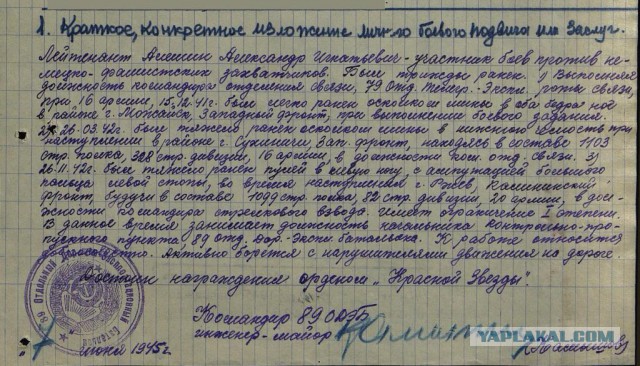 1. Краткое, конкретное изложение личного боевого подвига или заслуг.
Лейтенант Александр Игнатьевич - участник боев против не-
мецко-фашистских захватчиков. Был трижды ранен. 1) Выполняя
должность командира отделения связи, 79 отд. телегр.-экспл. роты связи,
при 16 армии, 15.12.41г. был легко ранен осколком мины в оба бедра ног
в районе г. Можайск, Западный фронт, при выполнении боевого задания.
2) 26.03.42г. был тяжело ранен осколком мины в нижнюю челюсть при
наступлении в районе г. Сухиничи Зап. фронт, находясь в составе 1103
стр. полка, 328 стр. дивизии, 16 армии, в должности ком. отд. связи. 3)
26.11.42г. был тяжело ранен пулей в левую ногу, с ампутацией большого
пальца левой стопы, во время наступления г. Ржев, Калининский
фронт, будучи в составе 1099 стр. полка, 82 стр. дивизии, 20 армии, в дол-
жности командира стрелкового взвода. имеет ограничение I степени.
В данное время занимает должность начальника контрольно-про-
пускного пункта 89 отд. дор.-экспл. батальона. К работе относится
Активно борется с нарушителями движения на дороге.
Достоин награждения орденом "Красной Звезды".
Командир 89 ОДЭБ
инженер-майор
июня 1945г.
89 Отдельный
Батальон
YAPLAKAL.COM